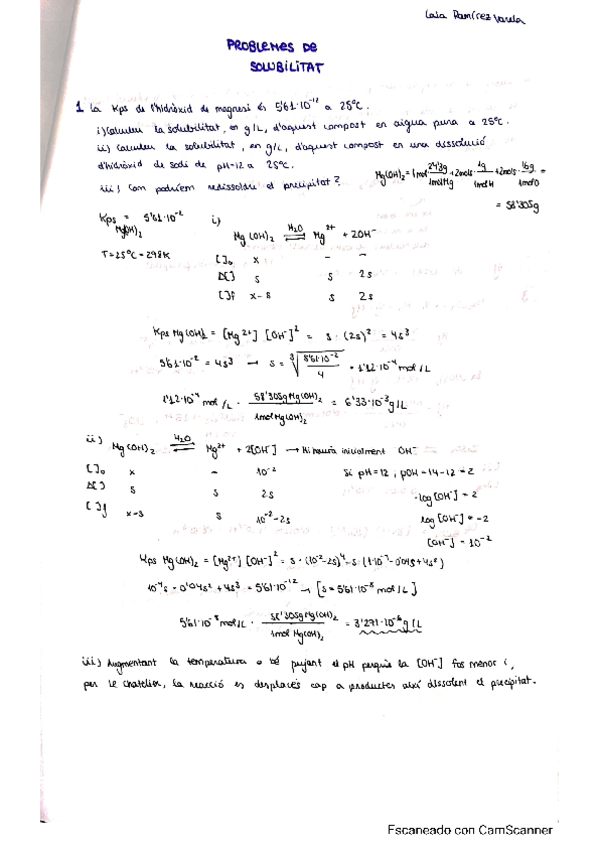 Laia Ramírez Varela
PROBLEMES DE
SOLUBILITAT
1 La Kps de l'hidròxid de magnesi és 5'61·10⁻¹² a 25ºC.
i) Calculeu la solubilitat, en g/L, d'aquest compost en aigua pura a 25ºC.
ii) Calculeu la solubilitat, en g/L, d'aquest compost en una dissolució
d'hidròxid de sodi de pH=12 a 25ºC.
iii) Com podríem redissoldre el precipitat?
Mg(OH)₂ = 1mol · 24'3g/1molMg + 2mols · 1g/1molH + 2mols · 16g/1molO =
= 58'305g
Kps Mg(OH)₂ = 5'61·10⁻²
T = 25ºC = 298K
i)
Mg(OH)₂ ⇌ H₂O Mg²⁺ + 2OH⁻
[ ]₀ x - -
Δ[ ] s s 2s
[ ]f x-s s 2s
Kps Mg(OH)₂ = [Mg²⁺] [OH⁻]² = s · (2s)² = 4s³
5'61·10⁻² = 4s³ → s = ∛(5'61·10⁻²/4) = 1'12·10⁻⁴ mol/L
1'12·10⁻⁴ mol/L · 58'305g Mg(OH)₂/1mol Mg(OH)₂ = 6'33·10⁻³ g/L
ii) Mg(OH)₂ ⇌ H₂O Mg²⁺ + 2[OH⁻] → Hi haurà inicialment OH⁻
[ ]₀ x - 10⁻² Si pH=12, pOH = 14-12 = 2
Δ[ ] s s 2s -log[OH⁻] = 2
[ ]f x-s s 10⁻²-2s log[OH⁻] = -2
[OH⁻] = 10⁻²
Kps Mg(OH)₂ = [Mg²⁺] [OH⁻]² = s · (10⁻²-2s)⁴ = s · (1·10⁻⁴ - 0'04s + 4s²)
10⁻⁴s - 0'04s² + 4s³ = 5'61·10⁻¹² → [s = 5'61·10⁻⁸ mol/L]
5'61·10⁻⁸ mol/L · 58'305g Mg(OH)₂/1mol Mg(OH)₂ = 3'271·10⁻⁶ g/L
iii) Augmentant la temperatura o bé pujant el pH perquè la [OH⁻] fos menor i,
per le chatelier, la reacció es desplacés cap a productes així dissolent el precipitat.
Escaneado con CamScanner